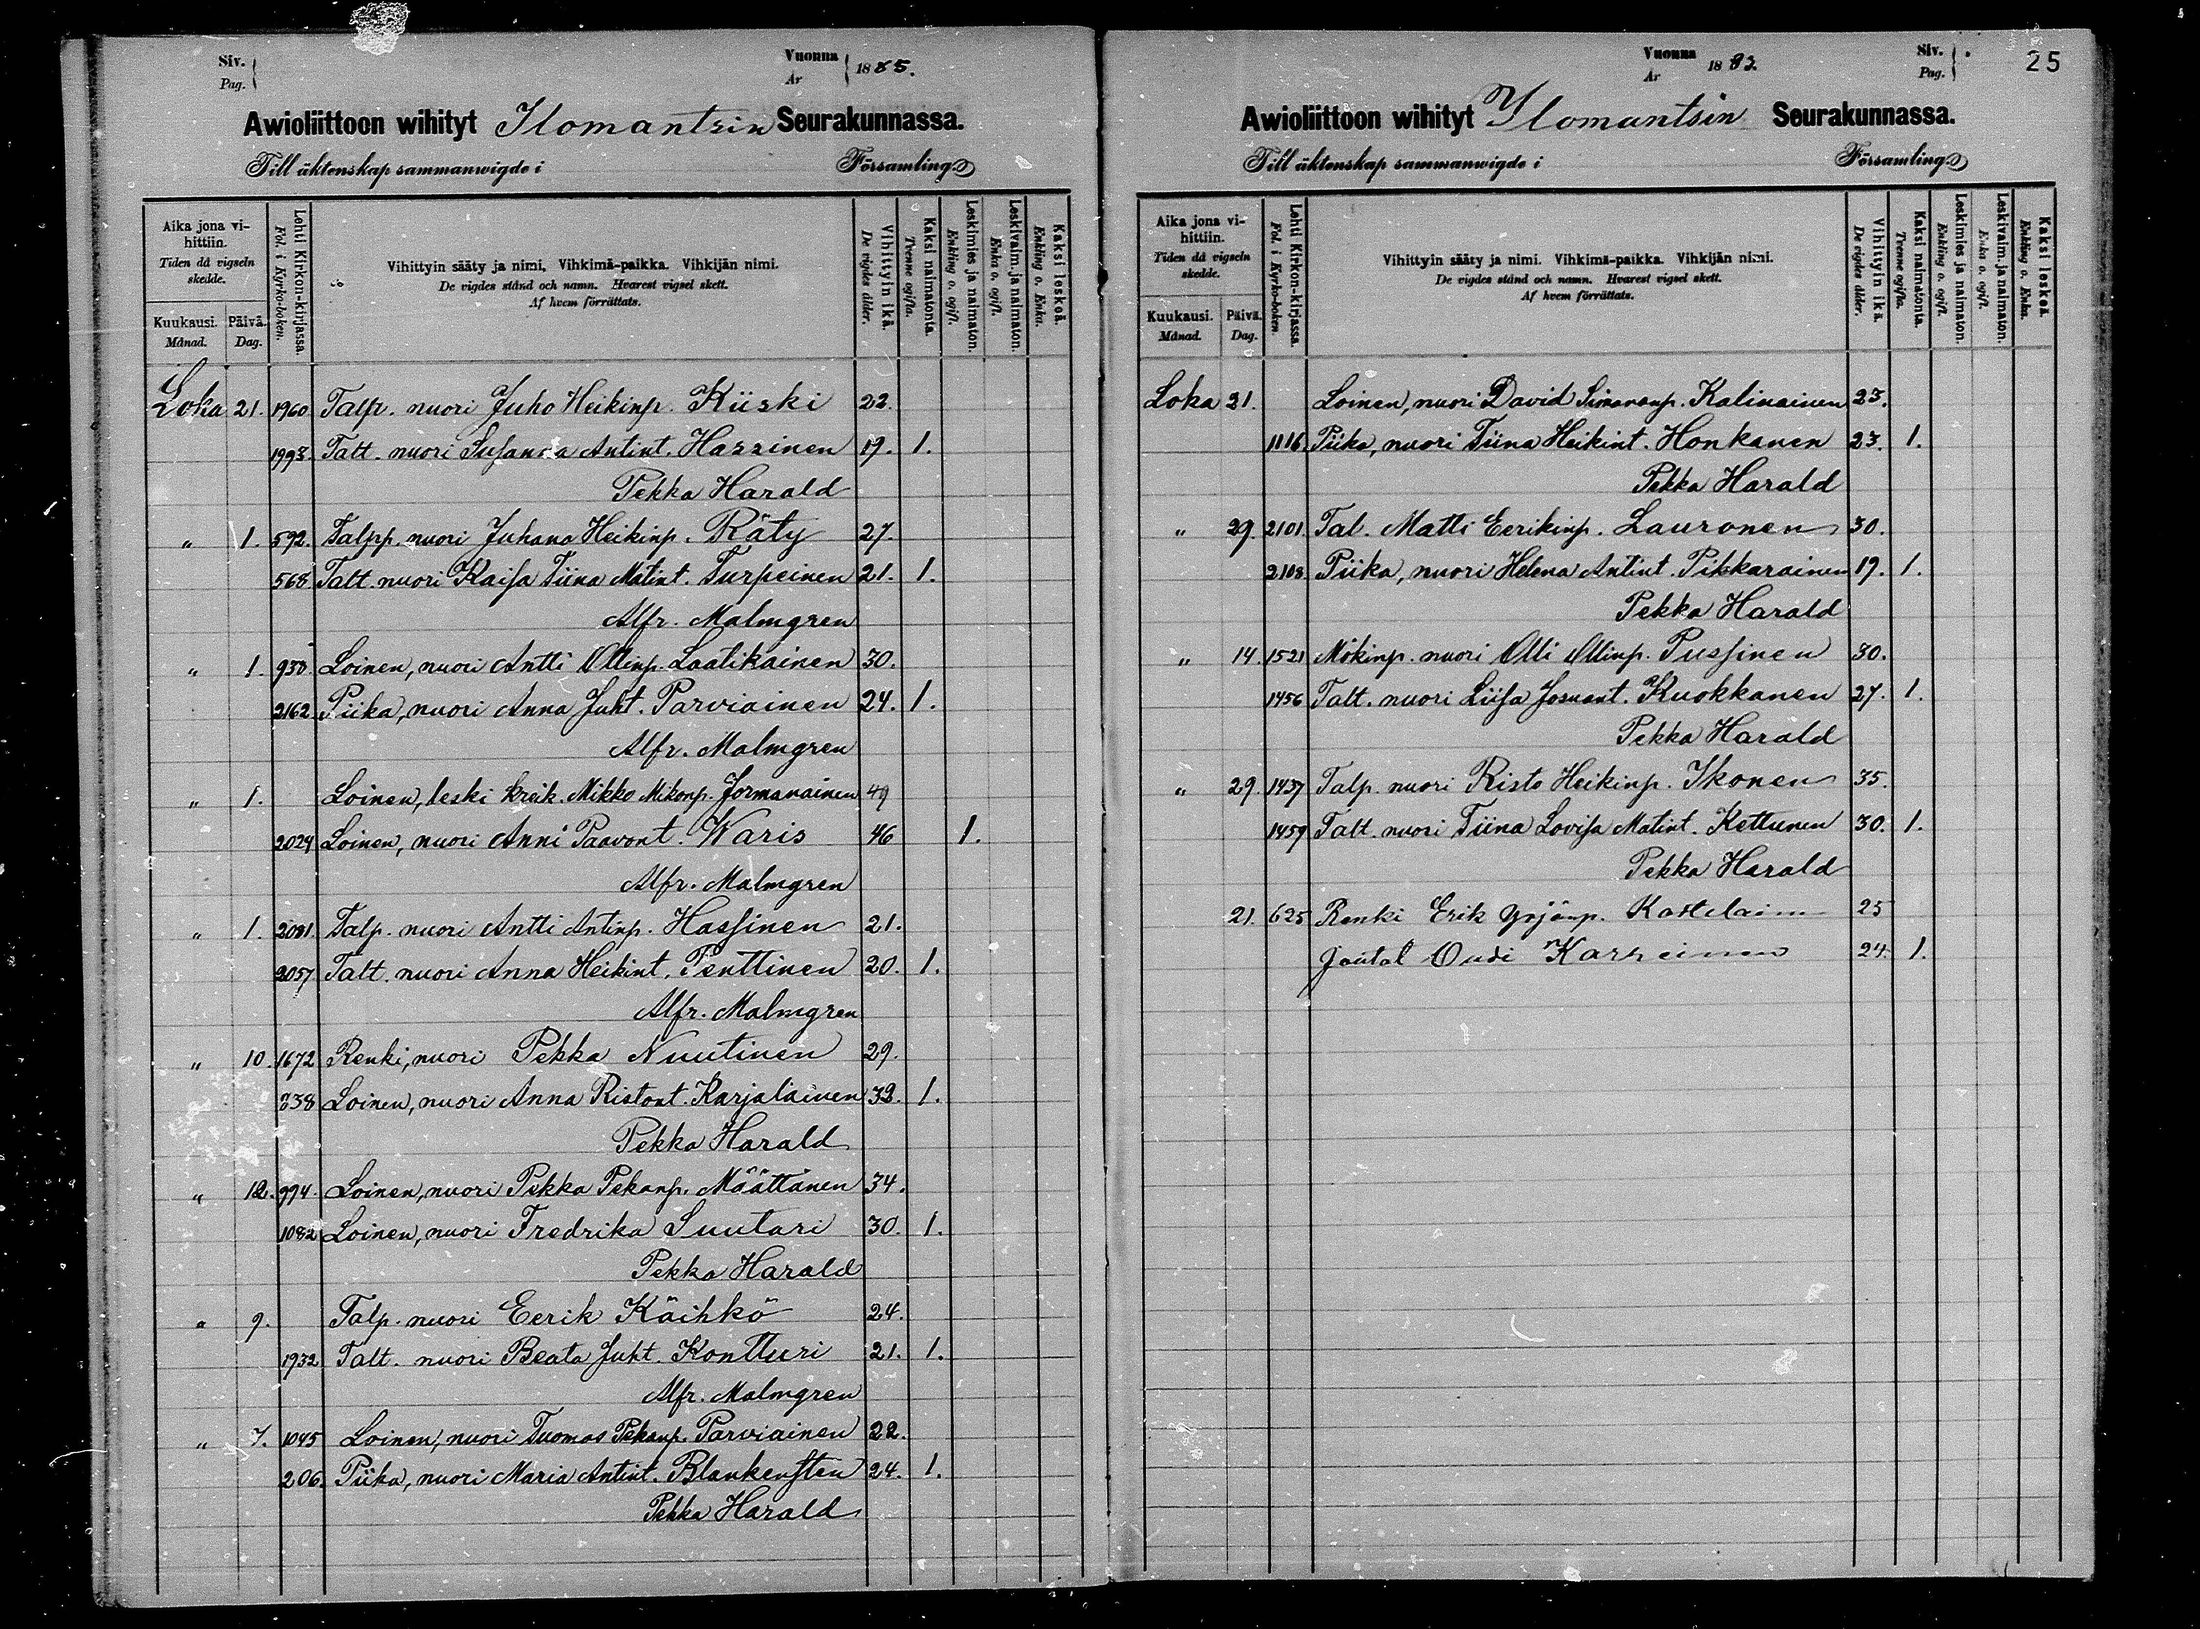 Siv.
Pag.
Vuonna
År
1885.
Awioliittoon wihityt Ilomantsin Seurakunnassa.
Till äktenskap sammanwigde i Församling
Aika jona vihittiin.
Tiden då vigseln skedde.
Kuukausi. Månad.
Päivä. Dag.
Lehti Kirkon-kirjassa. Fol. i Kyrko-boken.
Vihittyin sääty ja nimi, Vihkimä-paikka. Vihkijän nimi.
De vigdes stånd och namn. Hvarest vigsel skett.
Af hvem förrättats.
Vihittyin ikä. De vigdes ålder.
Kaksi naimatonta. Tvenne ogifta.
Leskimies ja naimaton. Enkling o. ogift.
Leskivaim. ja naimaton. Enka o. ogift.
Kaksi leskeä. Enkling o. Enka.
Loka 21. 1960 Talp. nuori Juho Heikinp. Kiiski 22.
1993. Talt. nuori Susanna Antint. Hassinen 19. 1.
Pekka Harald
" 1. 592. Talpp. nuori Juhana Heikinp. Räty 27.
568 Talt. nuori Kaisa Tiina Matint. Turpeinen 21. 1.
Alfr. Malmgren
" 1. 930. Loinen, nuori Antti Ollinp. Laatikainen 30.
2162 Piika, nuori Anna Juht. Parviainen 24. 1.
Alfr. Malmgren
" 1. Loinen, leski kreik. Mikko Mikonp. Jormanainen 49
2024 Loinen, nuori Anni Paavont. Waris 46 1.
Alfr. Malmgren
" 1. 2081. Talp. nuori Antti Antinp. Hassinen 21.
2057 Talt. nuori Anna Heikint. Penttinen 20. 1.
Alfr. Malmgren
" 10. 1672 Renki, nuori Pekka Nuutinen 29.
738 Loinen, nuori Anna Ristont. Karjalainen 32. 1.
Pekka Harald
" 12. 994. Loinen, nuori Pekka Pekanp. Määttänen 34.
1082 Loinen, nuori Fredrika Suutari 30. 1.
Pekka Harald
" 9. Talp. nuori Eerik Käihkö 24.
1932 Talt. nuori Beata Juht. Kontturi 21. 1.
Alfr. Malmgren
" 7. 1045 Loinen, nuori Tuomas Pekanp. Parviainen 22.
206. Piika, nuori Maria Antint. Blankensten 24. 1.
Pekka Harald
Vuonna
År
18
Siv.
Pag.
25
Awioliittoon wihityt Ylomantsin Seurakunnassa.
Till äktenskap sammanwigde i Församling
Aika jona vihittiin.
Tiden då vigseln skedde.
Kuukausi. Månad.
Päivä. Dag.
Lehti Kirkon-kirjassa. Fol. i Kyrko-boken.
Vihittyin sääty ja nimi. Vihkimä-paikka. Vihkijän nimi.
De vigdes stånd och namn. Hvarest vigsel skett.
Af hvem förrättats.
Vihittyin ikä. De vigdes ålder.
Kaksi naimatonta. Tvenne ogifta.
Leskimies ja naimaton. Enkling o. ogift.
Leskivaim. ja naimaton. Enka o. ogift.
Kaksi leskeä. Enkling o. Enka.
Loka 21. Loinen, nuori David Simananp. Kalinainen 23.
1116. Piika, nuori Tiina Heikint. Honkanen 23. 1.
Pekka Harald
" 29. 2101. Tal. Matti Eerikinp. Lauronen 30.
2108 Piika, nuori Helena Antint. Pikkarainen 19. 1.
Pekka Harald
" 14. 1521 Mökinp. nuori Olli Ollinp. Pussinen 30.
1456 Talt. nuori Liisa Josuant. Kuokkanen 27. 1.
Pekka Harald
" 29. 1437 Talp. nuori Risto Heikinp. Ikonen 35.
1459 Talt. nuori Tiina Lovisa Matint. Kettunen 30. 1.
Pekka Harald
21. 625 Renki Erik Yrjönp. 25
24. 1.